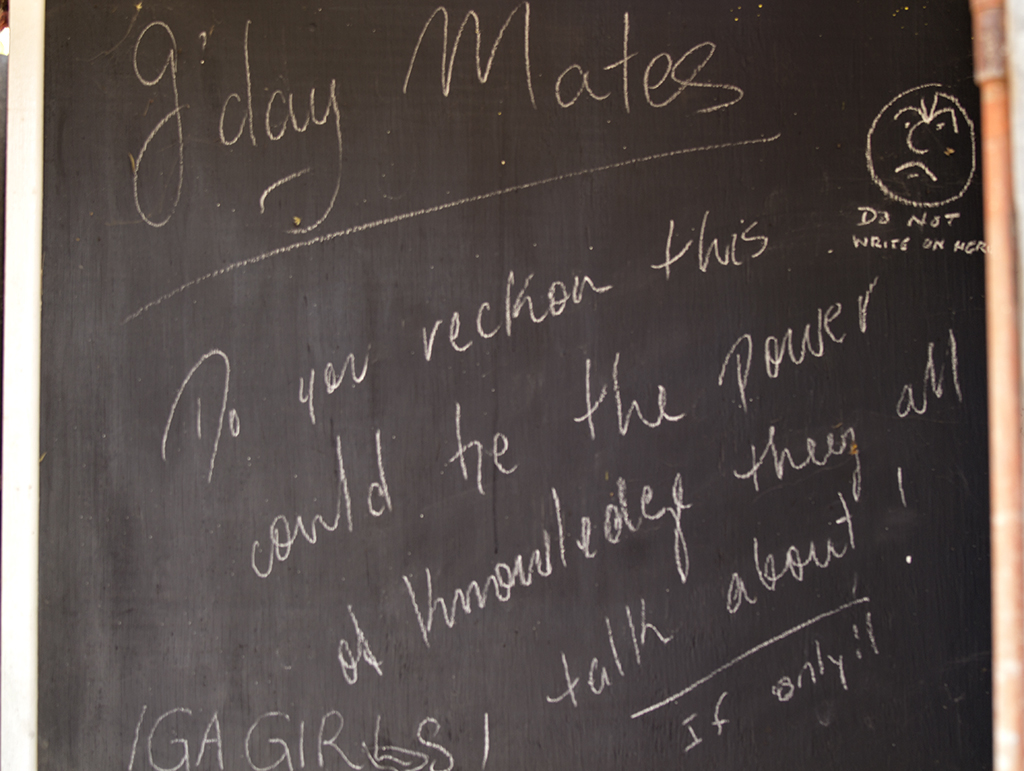 g'day Mates
DO NOT
WRITE ON HERE
Do you reckon this
could be the Power
of knowledge they all
talk about!
If only!!
IGA GIRLS!